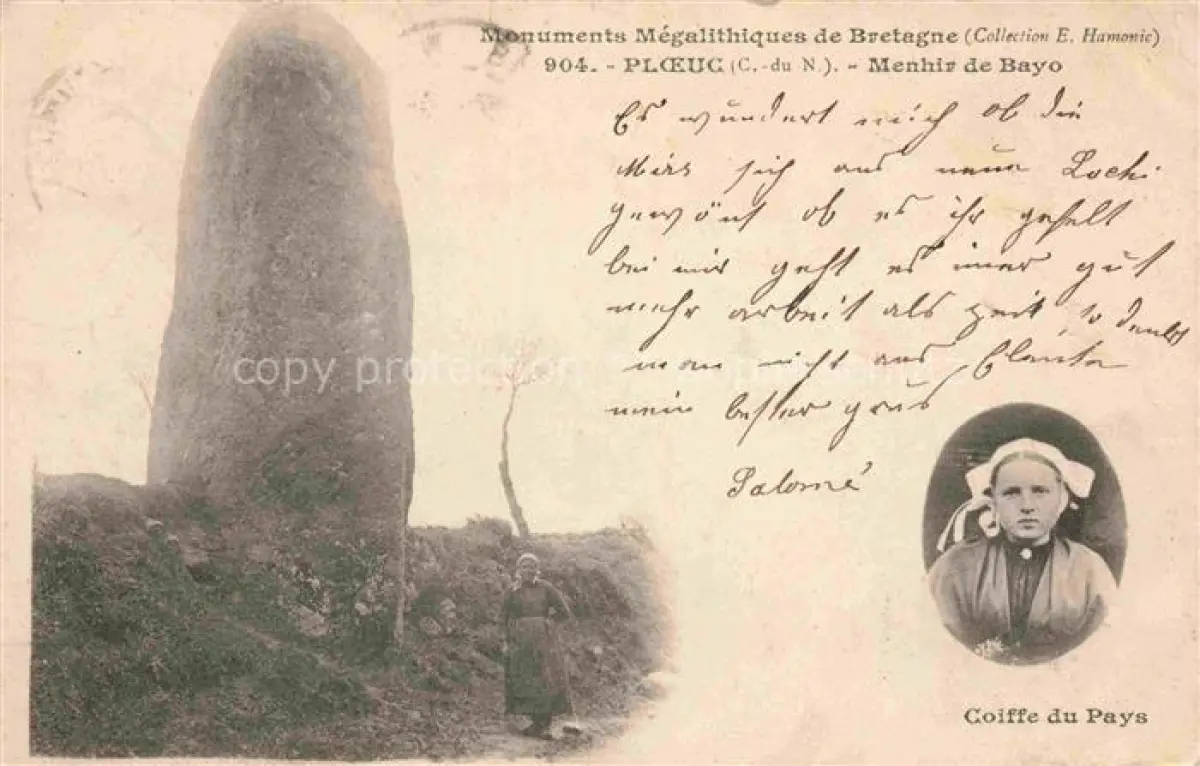 Monuments Mégalithiques de Bretagne (Collection E. Hamonic)
904. - PLŒUC (C.-du N.). - Menhir de Bayo
Es wundert mich ob die
sich aus neue Lochi
gewönt ob es ihr gefelt
bei mir geht es imer gut
mehr arbeit als zeit, so denkt
man nicht ans
mein bester grus
Salomé
copy protection
Coiffe du Pays